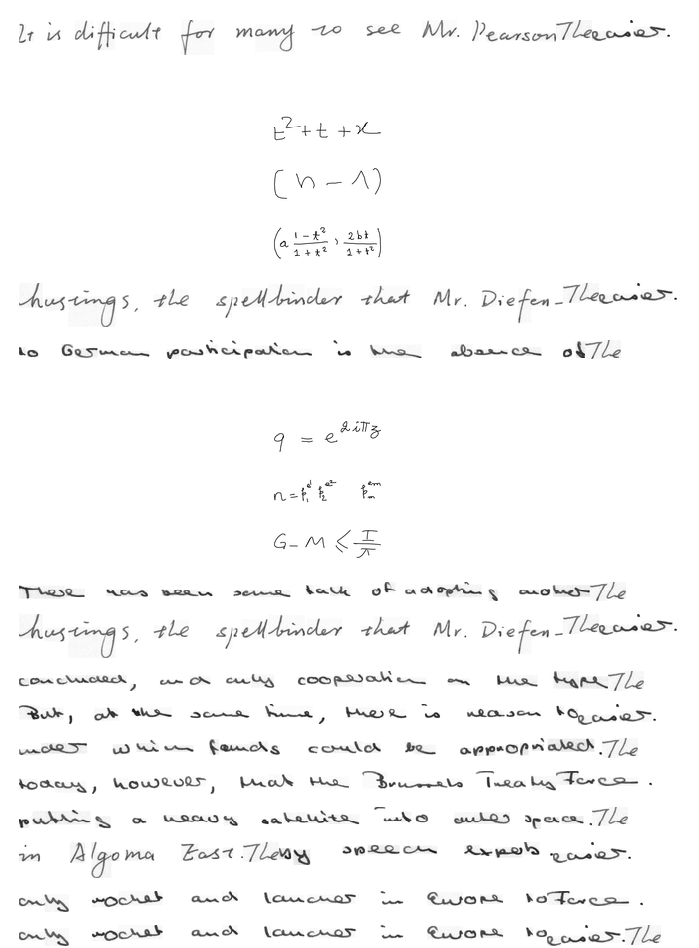 It is difficult for many to see Mr. Pearson The easier.
t² + t + x
(n − 1)
(a (1 − t²)/(1 + t²), 2bt/(1 + t²))
hustings, the spellbinder that Mr. Diefen- The easier.
to German participation is the absence of The
q = e^{2iπz}
n = p₁^{e¹} p₂^{e²} pₘ^{eₘ}
G − M ≤ I/π
There has been some talk of adopting another The
hustings, the spellbinder that Mr. Diefen- The easier.
concluded, and only cooperation on the type The
But, at the same time, there is reason to easier.
under which funds could be appropriated. The
today, however, that the Brussels Treaty Force .
putting a heavy satellite into outer space. The
in Algoma East. The by speech experts easier.
only rocket and launcher in Europe to Force .
only rocket and launcher in Europe to easier. The